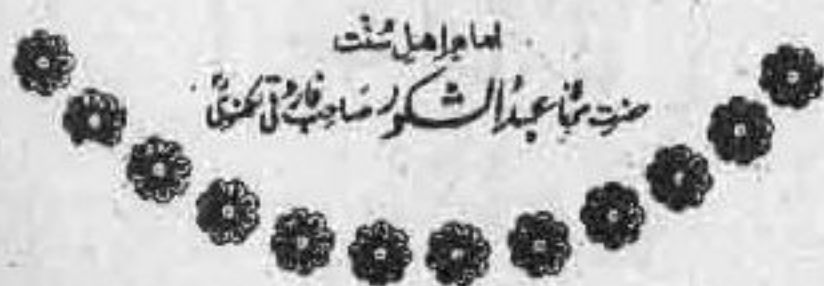 امام اھل سُنّت
حضرت مولانا عبدُالشکور صاحب فاروقی لکھنویؒ